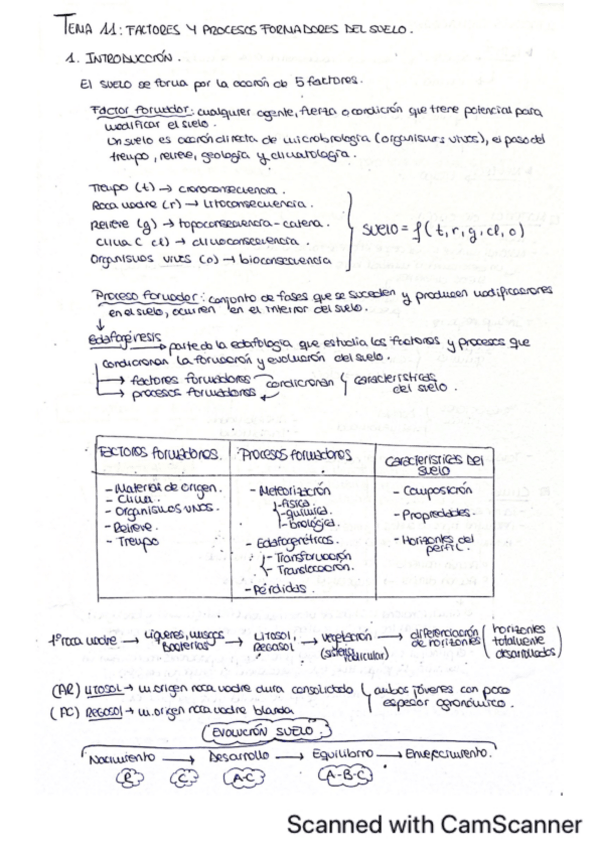 TEMA 11: FACTORES Y PROCESOS FORMADORES DEL SUELO.
1. INTRODUCCIÓN.
El suelo se forma por la acción de 5 factores.
Factor formador: cualquier agente, fuerza o condición que tiene potencial para
modificar el suelo.
Un suelo es acción directa de microbiología (organismos vivos), el paso del
tiempo, relieve, geología y climatología.
Tiempo (t) → cronoconsecuencia.
Roca madre (r) → Litoconsecuencia.
Relieve (g) → topoconsecuencia - catena.
Clima (cl) → climoconsecuencia.
Organismos vivos (o) → bioconsecuencia
suelo = f (t, r, g, cl, o)
Proceso formador: conjunto de fases que se suceden y producen modificaciones
en el suelo, ocurren en el interior del suelo.
↓
Edafogénesis → parte de la edafología que estudia los factores y procesos que
condicionan la formación y evolución del suelo.
→ factores formadores
→ procesos formadores
condicionan { características del suelo.
FACTORES formadores. | Procesos formadores | Características del suelo
- Material de origen.
- Clima.
- Organismos vivos.
- Relieve.
- Tiempo
- Meteorización
- física
- química.
- biológica.
- Edafogenéticos.
- Transformación
- Translocación.
- Pérdidas.
- Composición
- Propiedades.
- Horizontes del perfil.
1º roca madre → Líquenes, musgos, bacterias → LITOSOL, REGOSOL → vegetación (sistema radicular) → diferenciación de horizontes (horizontes totalmente desarrollados)
(AR) LITOSOL → m. origen roca madre dura consolidada
(AC) REGOSOL → m. origen roca madre blanda
} ambos jóvenes con poco espesor agronómico.
EVOLUCIÓN SUELO.
Nacimiento → Desarrollo → Equilibrio → Envejecimiento.
R C A-C A-B-C
Scanned with CamScanner